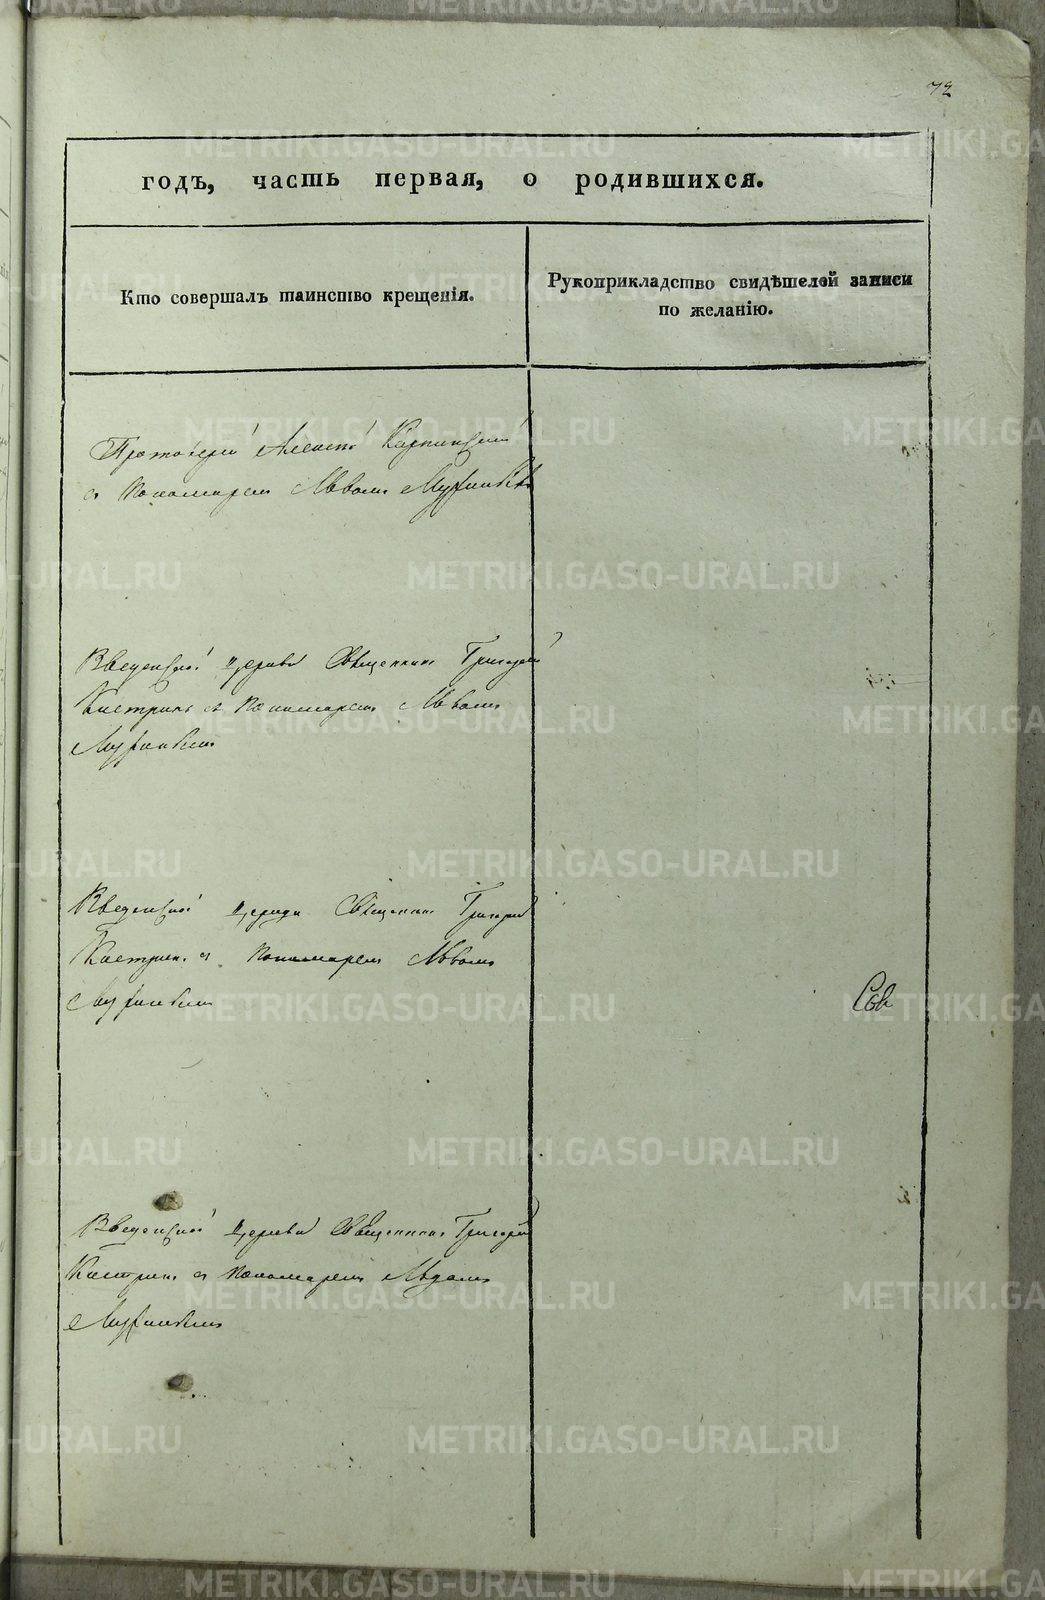 72
годъ, часть первая, о родившихся.
Кто совершалъ таинство крещенія.
Рукоприкладство свидѣтелей записи
по желанію.
Протоіерей Алексѣй Карпинскій
съ Пономаремъ Львомъ
Введенской церкви Священникъ Григорій
Кастринъ съ Пономаремъ Львомъ
Введенской церкви Священникъ Григорій
Кастринъ съ Пономаремъ Львомъ
Сов
Введенской церкви Священникъ Григорій
Кастринъ съ Пономаремъ Львомъ
METRIKI.GASO-URAL.RU